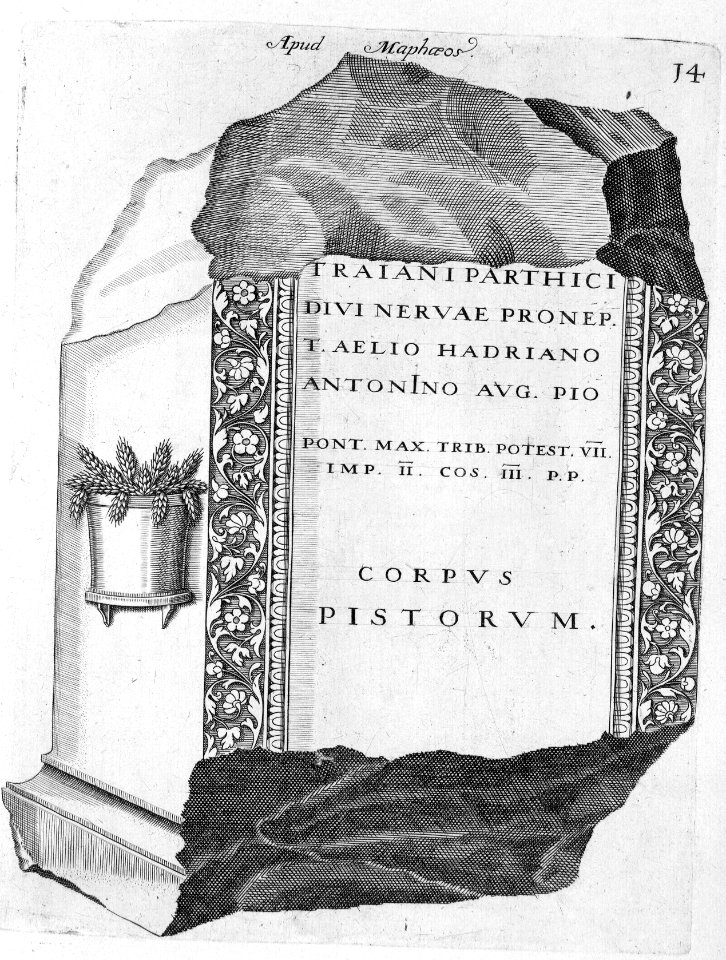 Apud Maphæos.
14
TRAIANI PARTHICI
DIVI NERVAE PRONEP.
T. AELIO HADRIANO
ANTONINO AVG. PIO
PONT. MAX. TRIB. POTEST. V̅I̅I̅.
IMP. I̅I̅. COS. I̅I̅I̅. P.P.
CORPVS
PISTORVM.